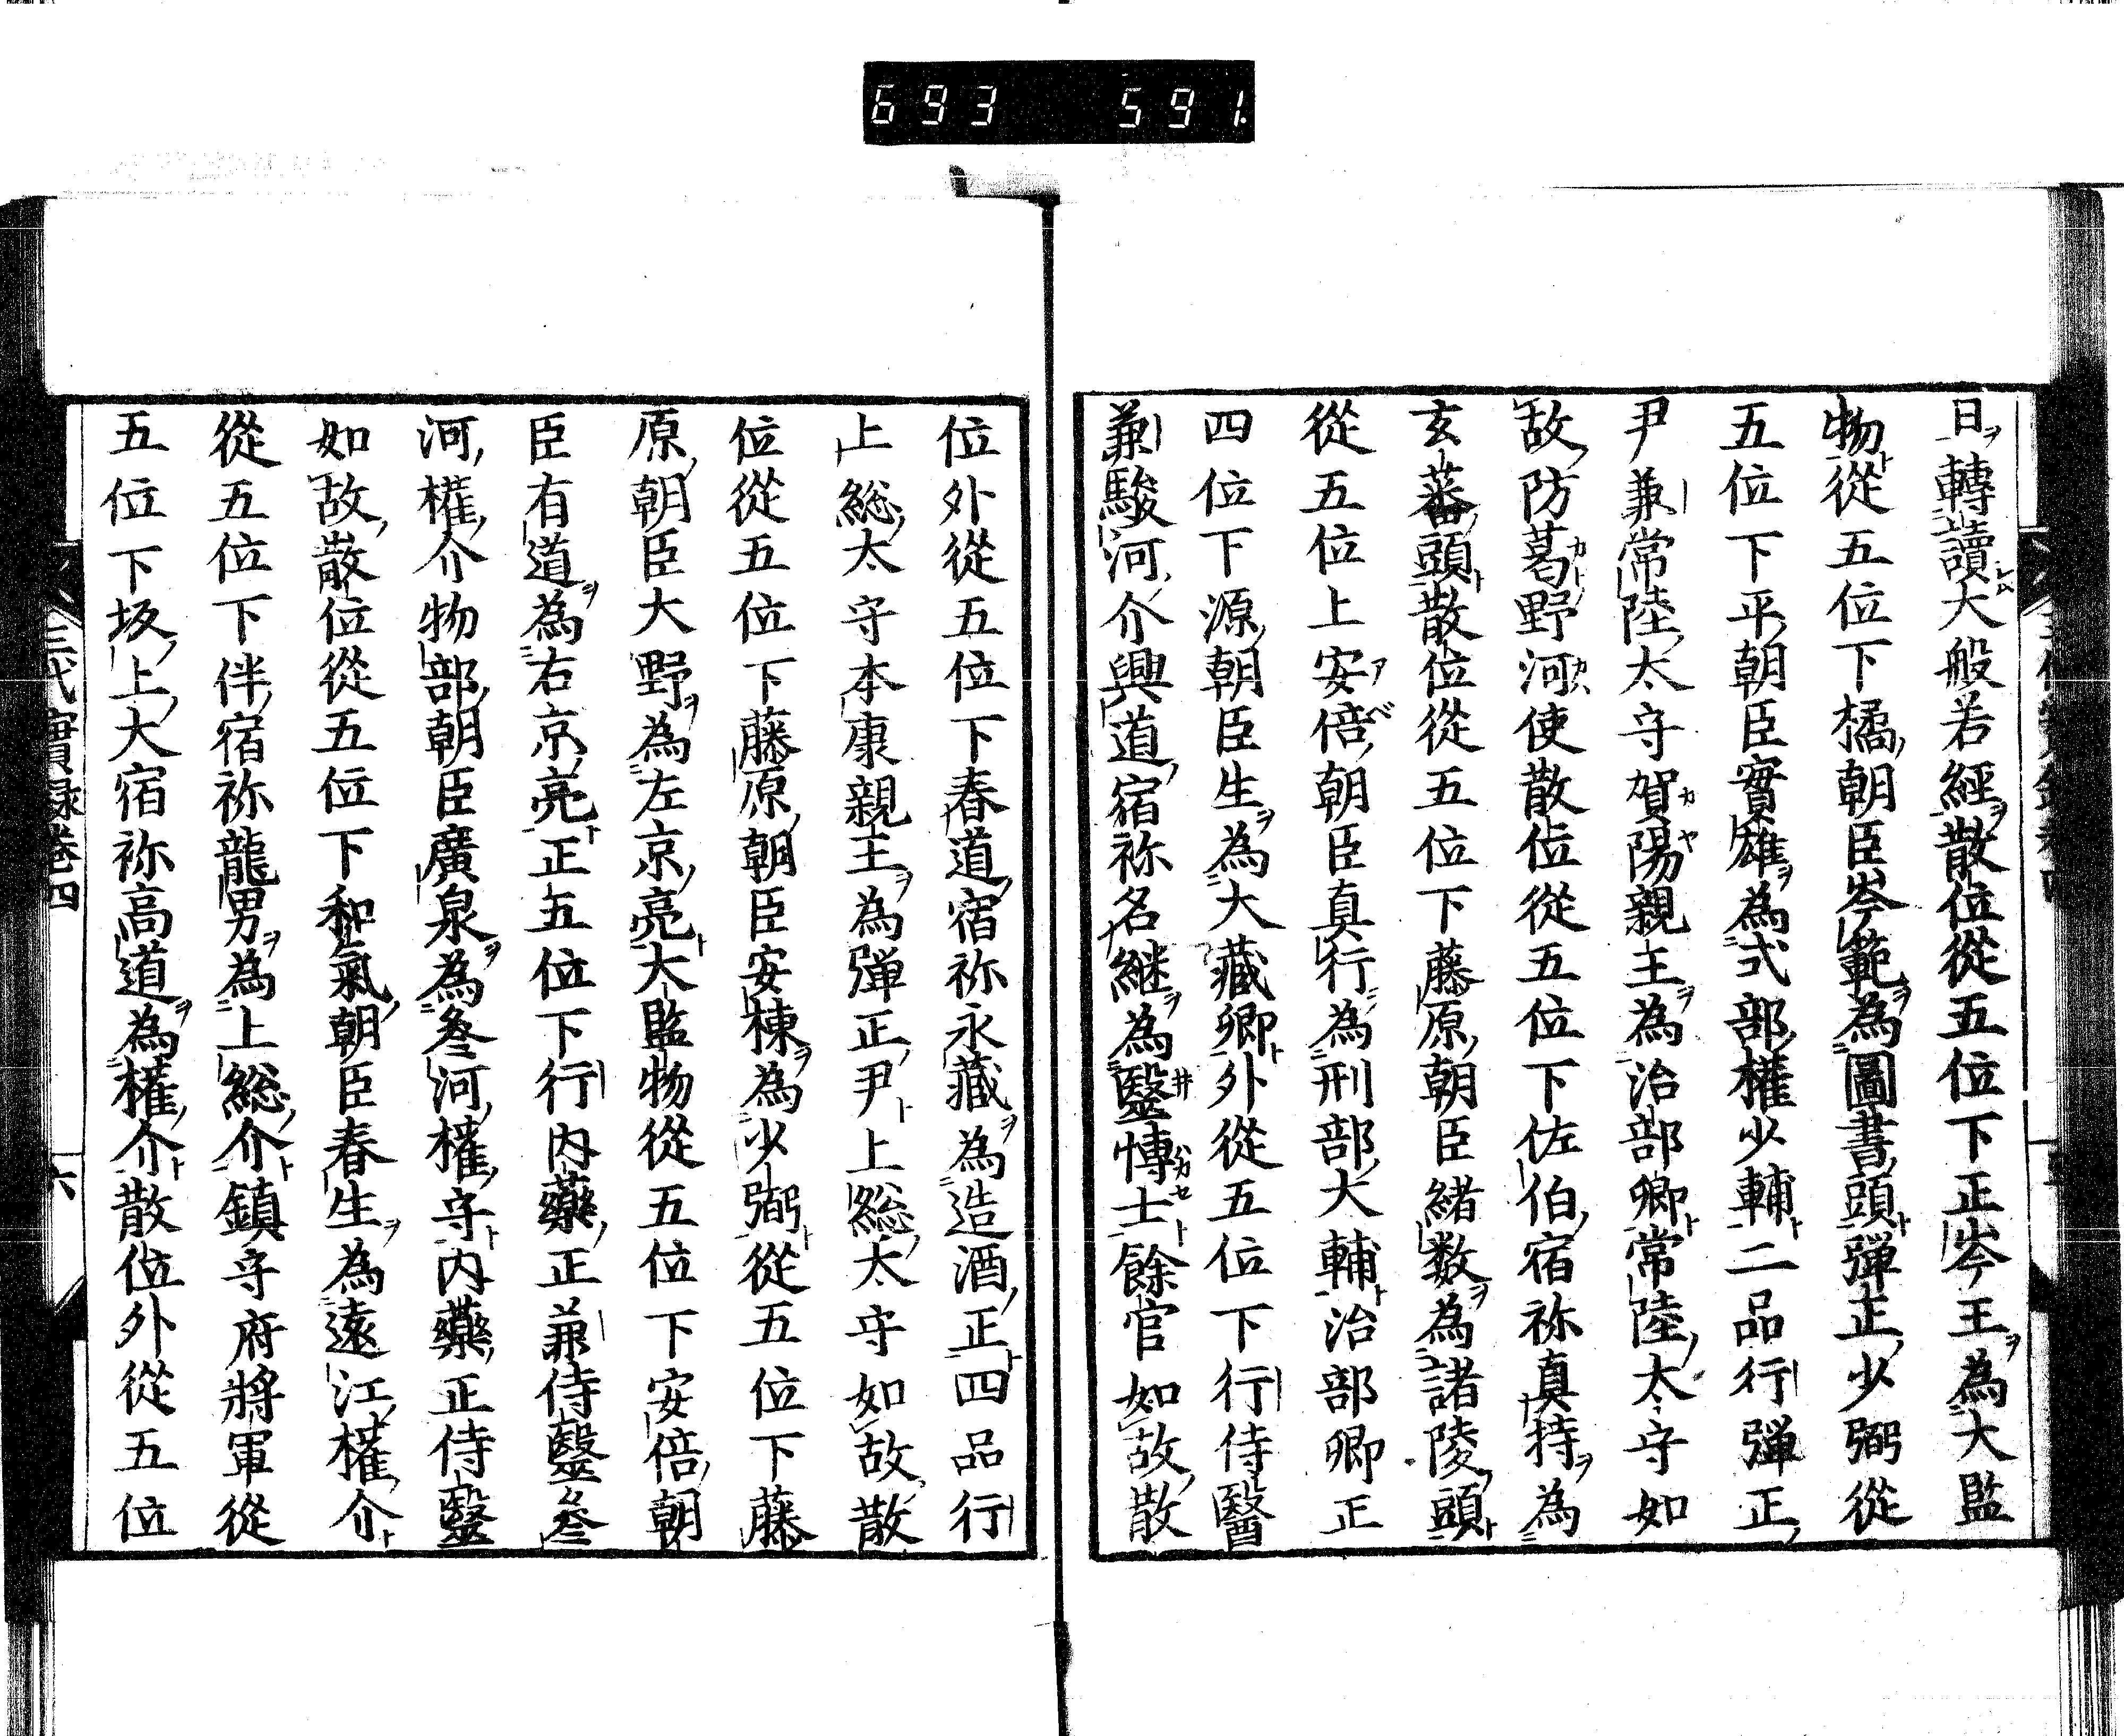 693 591.
日轉讀大般若經散位從五位下正岑王為大監
物從五位下橘朝臣岑範為圖書頭彈正少弼從
五位下平朝臣實雄為式部權少輔二品行彈正
尹兼常陸太守賀陽親王為治部卿常陸太守如
故防葛野河使散位從五位下佐伯宿祢真持為
玄蕃頭散位從五位下藤原朝臣緒数為諸陵頭
從五位上安倍朝臣真行為刑部大輔治部卿正
四位下源朝臣生為大藏卿外從五位下行侍醫
兼駿河介興道宿祢名継為毉愽士餘官如故散
位外從五位下春道宿祢永藏為造酒正四品行
上総太守本康親王為彈正尹上総太守如故散
位從五位下藤原朝臣安棟為少弼從五位下藤
原朝臣大野為左京亮大監物從五位下安倍朝
臣有道為右京亮正五位下行内藥正兼侍毉叅
河權介物部朝臣廣泉為叅河權守内藥正侍毉
如故散位從五位下和氣朝臣春生為遠江權介
從五位下伴宿祢龍男為上総介鎮守府將軍從
五位下坂上大宿祢高道為權介散位外從五位
三代實録卷四
六